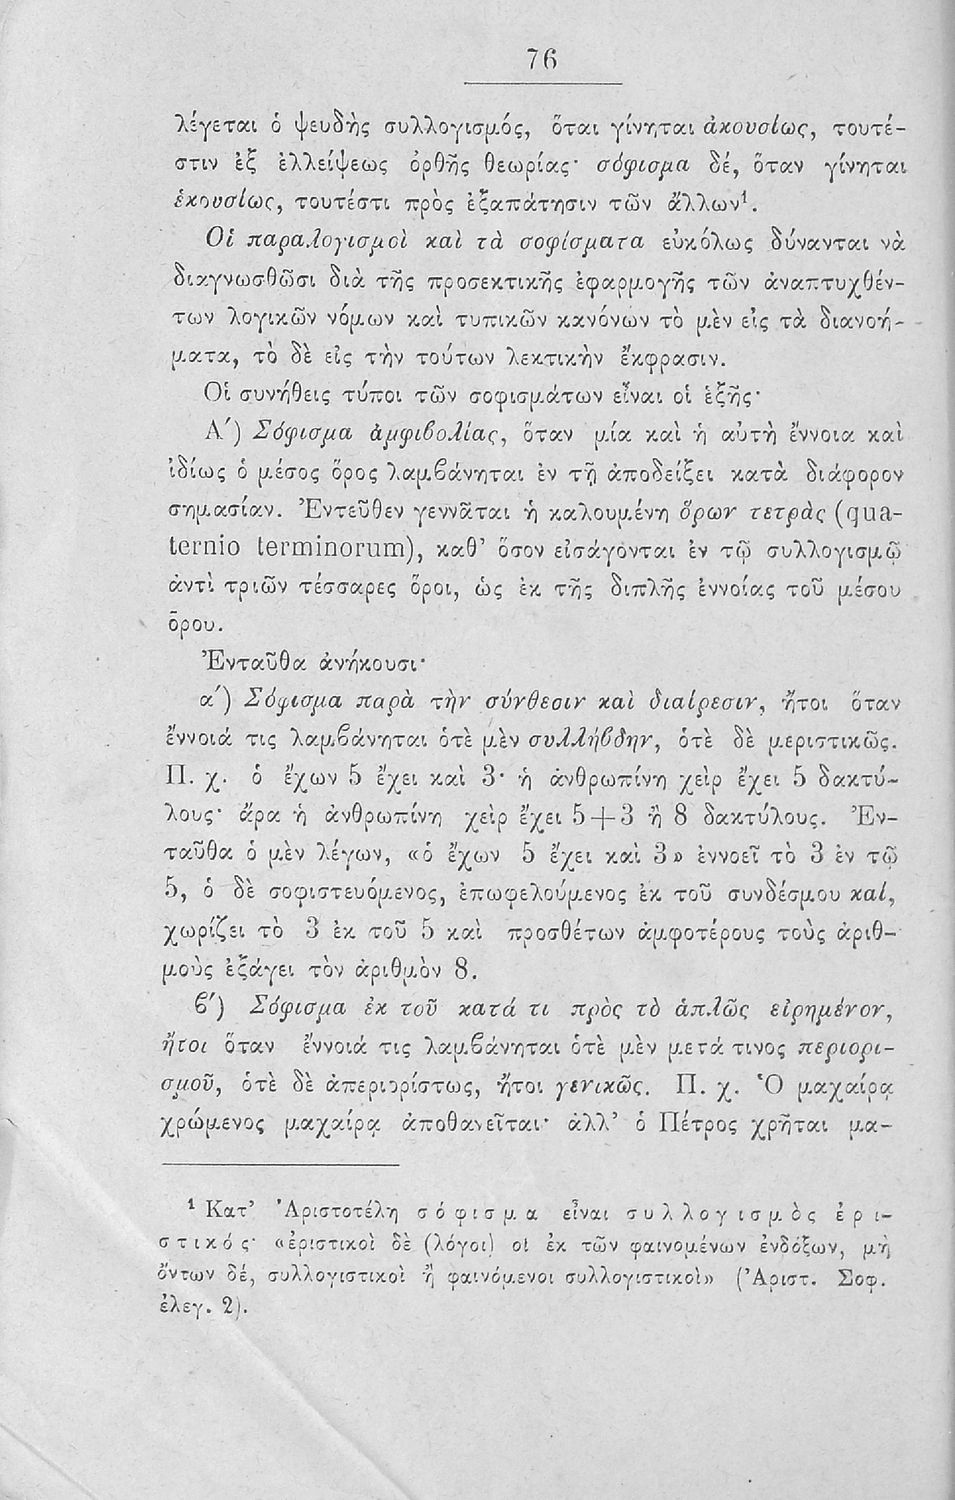 76
λέγεται ὁ ψευδὴς συλλογισμός, ὅται γίνηται ἀκουσίως, τουτέ-
στιν ἐξ ἐλλείψεως ὀρθῆς θεωρίας· σόφισμα δέ, ὅταν γίνηται
ἑκουσίως, τουτέστι πρὸς ἐξαπάτησιν τῶν ἄλλων¹.
Οἱ παραλογισμοὶ καὶ τὰ σοφίσματα εὐκόλως δύνανται νὰ
διαγνωσθῶσι διὰ τῆς προσεκτικῆς ἐφαρμογῆς τῶν ἀναπτυχθέν-
των λογικῶν νόμων καὶ τυπικῶν κανόνων τὸ μὲν εἰς τὰ διανοή-
ματα, τὸ δὲ εἰς τὴν τούτων λεκτικὴν ἔκφρασιν.
Οἱ συνήθεις τύποι τῶν σοφισμάτων εἶναι οἱ ἑξῆς·
Α΄) Σόφισμα ἀμφιβολίας, ὅταν μία καὶ ἡ αὐτὴ ἔννοια καὶ
ἰδίως ὁ μέσος ὅρος λαμβάνηται ἐν τῇ ἀποδείξει κατὰ διάφορον
σημασίαν. Ἐντεῦθεν γεννᾶται ἡ καλουμένη ὅρων τετρὰς (qua-
ternio terminorum), καθ’ ὅσον εἰσάγονται ἐν τῷ συλλογισμῷ
ἀντὶ τριῶν τέσσαρες ὅροι, ὡς ἐκ τῆς διπλῆς ἐννοίας τοῦ μέσου
ὅρου.
Ἐνταῦθα ἀνήκουσι·
α΄) Σόφισμα παρὰ τὴν σύνθεσιν καὶ διαίρεσιν, ἤτοι ὅταν
ἔννοιά τις λαμβάνηται ὁτὲ μὲν συλλήβδην, ὁτὲ δὲ μεριστικῶς.
Π. χ. ὁ ἔχων 5 ἔχει καὶ 3· ἡ ἀνθρωπίνη χεὶρ ἔχει 5 δακτύ-
λους· ἄρα ἡ ἀνθρωπίνη χεὶρ ἔχει 5+3 ἢ 8 δακτύλους. Ἐν-
ταῦθα ὁ μὲν λέγων, «ὁ ἔχων 5 ἔχει καὶ 3» ἐννοεῖ τὸ 3 ἐν τῷ
5, ὁ δὲ σοφιστευόμενος, ἐπωφελούμενος ἐκ τοῦ συνδέσμου καί,
χωρίζει τὸ 3 ἐκ τοῦ 5 καὶ προσθέτων ἀμφοτέρους τοὺς ἀριθ-
μοὺς ἐξάγει τὸν ἀριθμὸν 8.
β΄) Σόφισμα ἐκ τοῦ κατά τι πρὸς τὸ ἁπλῶς εἰρημένον,
ἤτοι ὅταν ἔννοιά τις λαμβάνηται ὁτὲ μὲν μετά τινος περιορι-
σμοῦ, ὁτὲ δὲ ἀπεριορίστως, ἤτοι γενικῶς. Π. χ. Ὁ μαχαίρᾳ
χρώμενος μαχαίρᾳ ἀποθανεῖται· ἀλλ’ ὁ Πέτρος χρῆται μα-
¹ Κατ’ Ἀριστοτέλη σόφισμα εἶναι συλλογισμὸς ἐρι-
στικός· «ἐριστικοὶ δὲ (λόγοι) οἱ ἐκ τῶν φαινομένων ἐνδόξων, μὴ
ὄντων δέ, συλλογιστικοὶ ἢ φαινόμενοι συλλογιστικοὶ» (Ἀριστ. Σοφ.
ἐλεγ. 2).